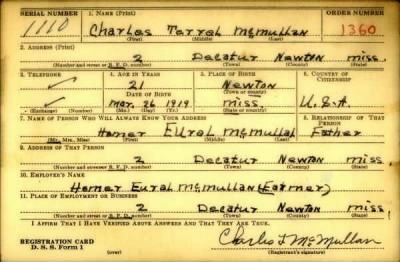 SERIAL NUMBER 1. NAME (Print) ORDER NUMBER
1110 Charles Terral McMullan 1360
(First) (Middle) (Last)
2. ADDRESS (Print)
2 Decatur Newton miss.
(Number and street or R. F. D. number) (Town) (County) (State)
3. TELEPHONE 4. AGE IN YEARS 5. PLACE OF BIRTH 6. COUNTRY OF CITIZENSHIP
21 Newton
DATE OF BIRTH (Town or county)
Mar. 26 1919 miss. U.S.A.
(Exchange) (Number) (Mo.) (Day) (Yr.) (State or country)
7. NAME OF PERSON WHO WILL ALWAYS KNOW YOUR ADDRESS 8. RELATIONSHIP OF THAT PERSON
Homer Eural McMullan Father
(Mr., Mrs., Miss) (First) (Middle) (Last)
9. ADDRESS OF THAT PERSON
2 Decatur Newton miss
(Number and street or R. F. D. number) (Town) (County) (State)
10. EMPLOYER'S NAME
Homer Eural McMullan (Farmer)
11. PLACE OF EMPLOYMENT OR BUSINESS
2 Decatur Newton miss
(Number and street or R. F. D. number) (Town) (County) (State)
I AFFIRM THAT I HAVE VERIFIED ABOVE ANSWERS AND THAT THEY ARE TRUE.
REGISTRATION CARD
D. S. S. Form 1 (over) Charles T McMullan
(Registrant's signature)